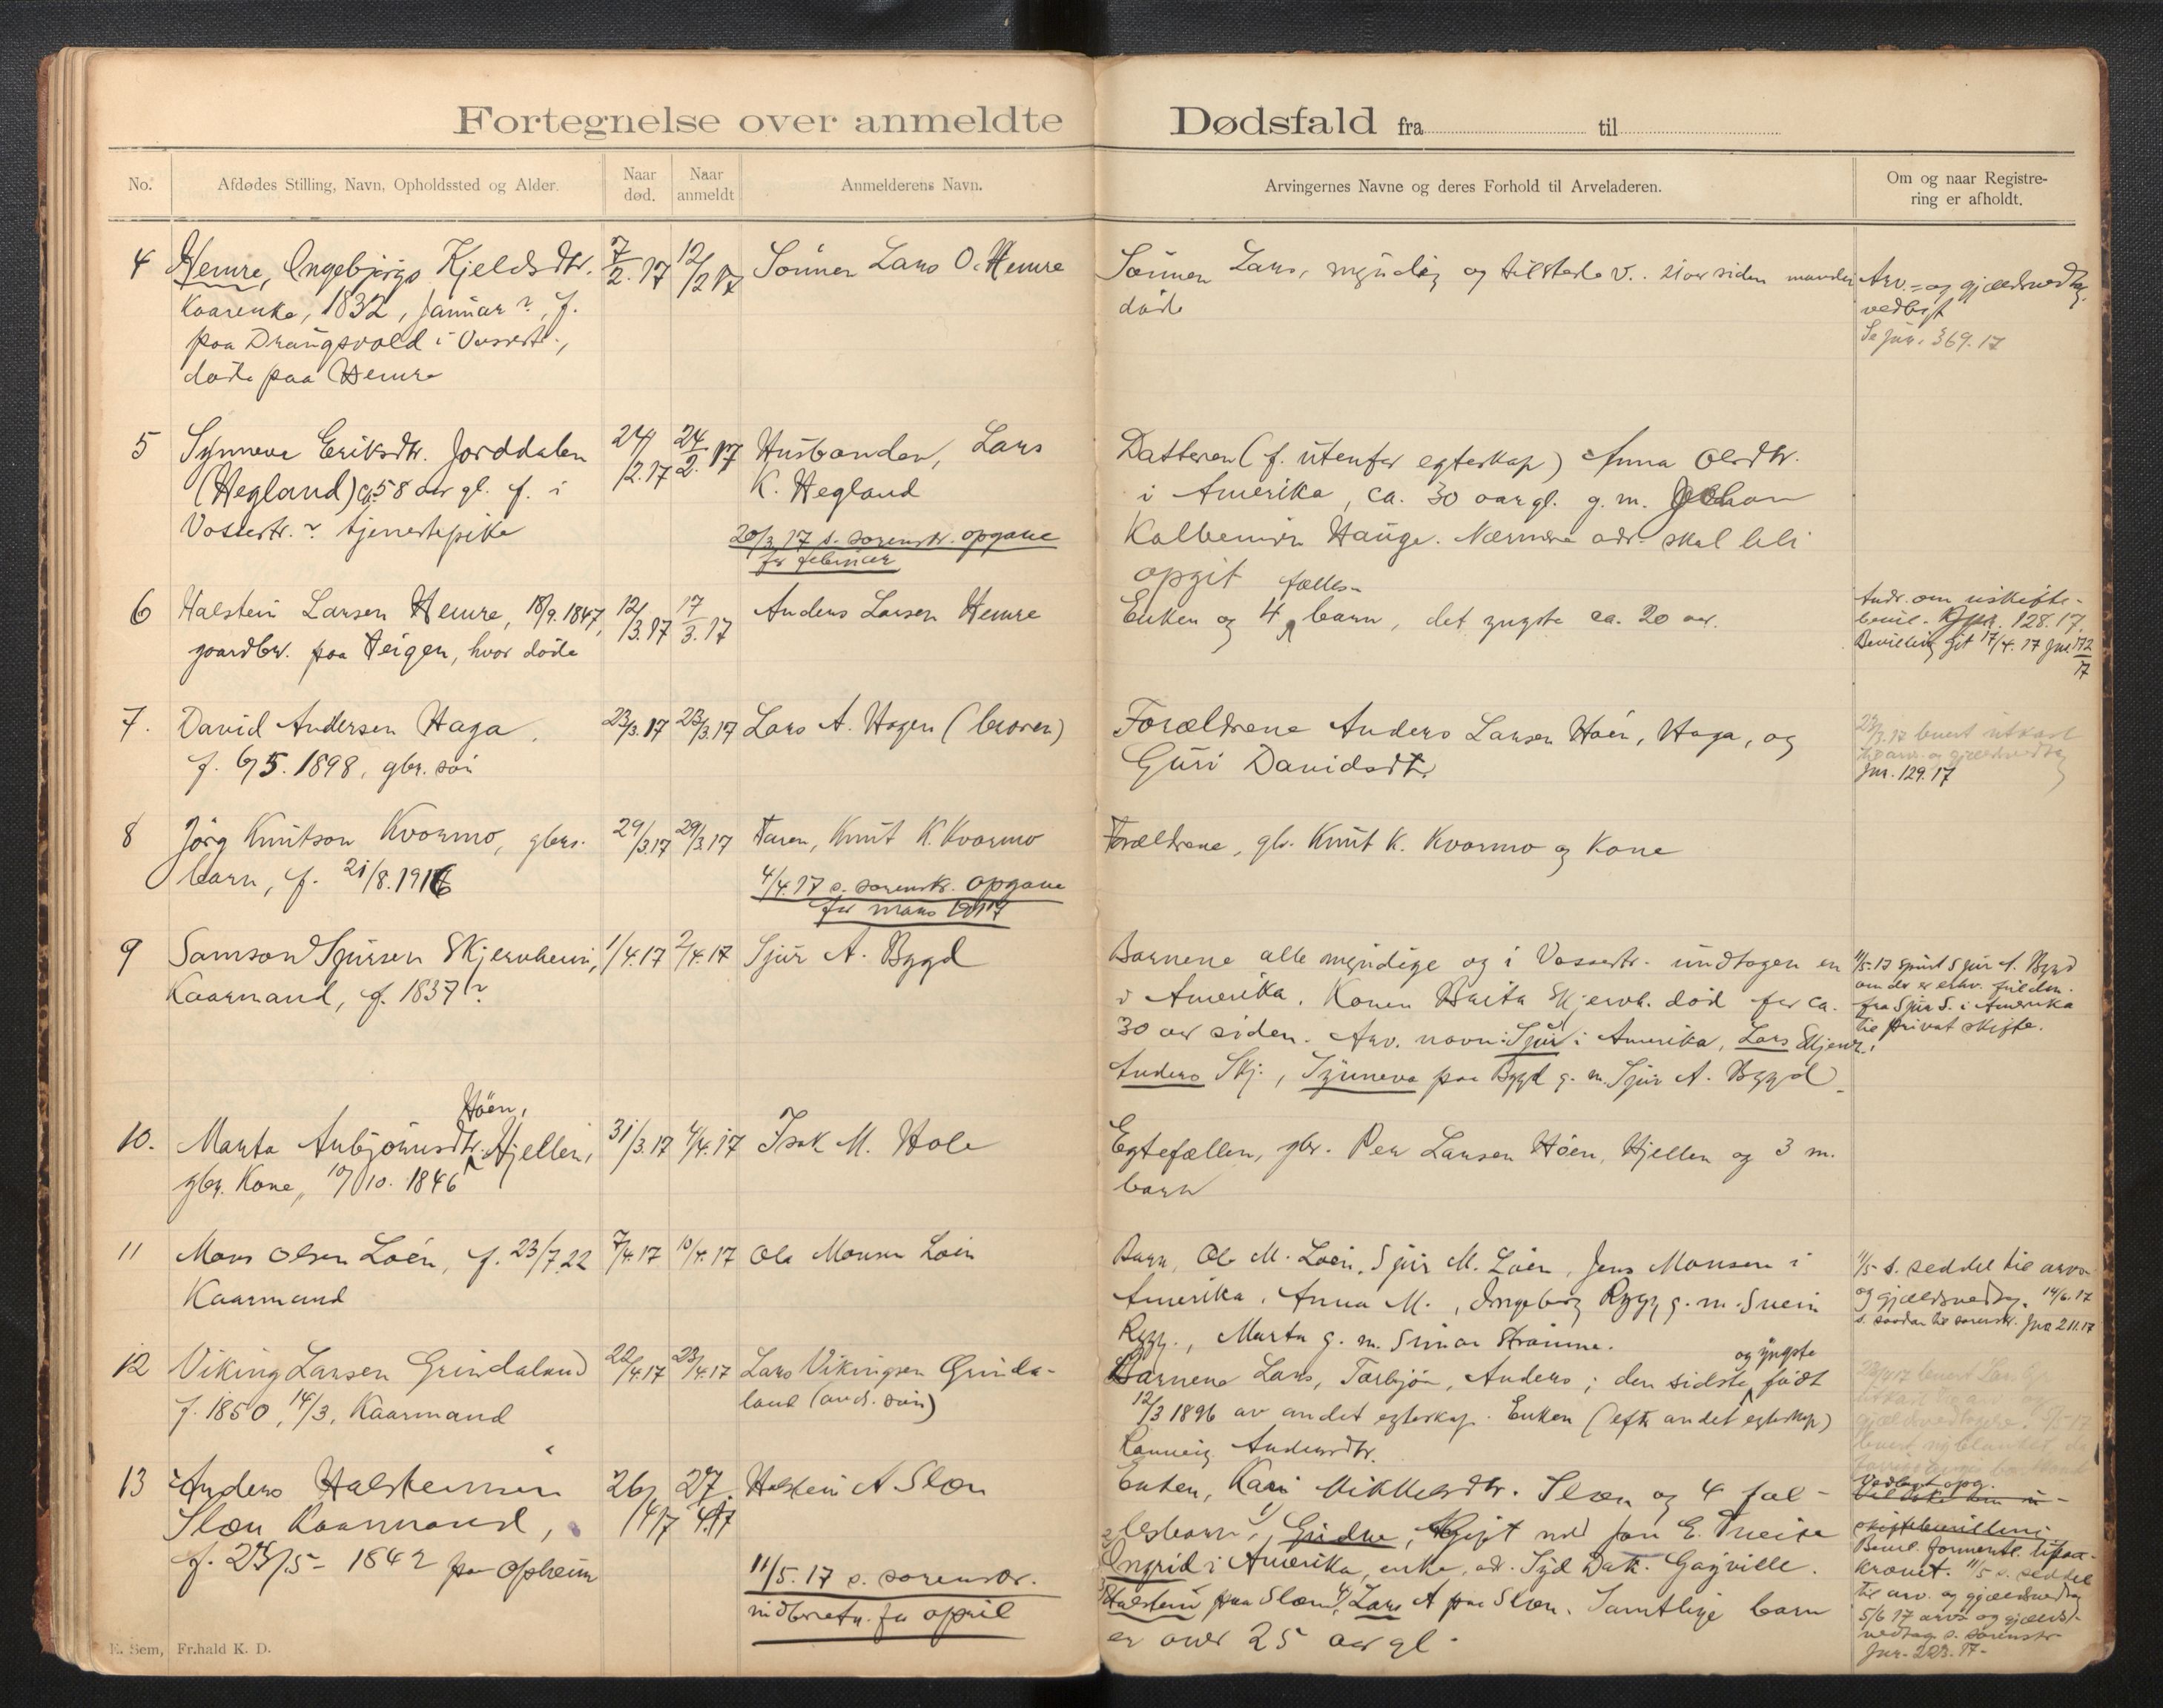 Fortegnelse over anmeldte Dødsfald fra til
No.
Afdødes Stilling, Navn, Opholdssted og Alder.
Naar død.
Naar anmeldt
Anmelderens Navn.
Arvingernes Navne og deres Forhold til Arveladeren.
Om og naar Registrering er afholdt.
4 Hemre, Ingebjørg Kjeldsdtr. 7/2.17 12/2 17 Sønnen Lars O. Hemre
Kaarenke, 1832, januar?, f.
paa Drangsvold i Vossestr.,
døde paa Hemre
Sønnen Lars, myndig og tilstede v. 21 aar siden manden
døde
Arv.= og gjældsvedtag.
vedlagt
Se jnr. 369.17
5 Synneva Eriksdtr. Jorddalen 24/2.17 24/2.17 Husbonden, Lars
(Hegland) ca 58 aar gl. f. i K. Hegland
Vossestr.? tjenestepike
20/3.17 s. sorenskr. opgave
for februar
Datteren (f. utenfor egteskap) Anna Olsdtr.
i Amerika, ca. 30 aar gl. g. m. Johan
Hauge. Nærmere adr. skal bli
opgit
6 Halstein Larsen Hemre, 18/9.1847, 12/3.17 17/3.17 Anders Larsen Hemre
gaardbr. paa Teigen, hvor døde
Enken og 4 fælles- barn, det yngste ca. 20 aar.
Andr. om uskifte-
bevil. Jnr. 128.17.
Bevilling git 17/4.17 Jnr 172/17
7. David Andersen Haga. 23/3.17 23/3.17 Lars A. Hagen (broren)
f. 6/5.1898, gbr. søn
Forældrene Anders Larsen Høen, Haga, og
Guri Davidsdtr.
23/3.17 levert utkast
til arv. og gjældsvedtag
Jnr. 129.17
8 Jørg Knutson Kvarmo, gbrs. 29/3.17 29/3.17 Faren, Knut K. Kvarmo
barn, f. 21/8.1916
4/4.17 s. sorenskr. opgave
for mars 1917
Forældrene, gbr. Knut K. Kvarmo og Kone
9 Samson Sjursen Skjervheim, 1/4.17 2/4.17 Sjur A. Bygd
Kaarmand, f. 1837?
Barnene alle myndige og i Vossestr. undtagen en
i Amerika. Konen Brita Skjervh. død for ca.
30 aar siden. Arv. navn: Sjur i Amerika, Lars Skjervh.,
Anders Skj., Synneva paa Bygd g. m. Sjur A. Bygd
11/5.17 spurt Sjur A. Bygd
om der er erhv. fuldm.
fra Sjur S. i Amerika
til privat skifte.
10. Marta Anbjørnsdtr. Høen, Hjellen, 31/3.17 4/4.17 Isak M. Hole
gbr. Kone, 10/10.1846
Egtefællen, gbr. Per Larsen Høen, Hjellen og 3 m.
barn
11 Mons Olsen Løen, f. 23/7.22 7/4.17 10/4.17 Ole Monsen Løen
Kaarmand
Barn, Ole M. Løen, Sjur M. Løen, Jens Monsen i
Amerika, Anna M., Ingeborg Rygg g. m. Svein
Rygg, Marta g. m. Strømme.
11/5 s. seddel til arve-
og gjældsvedtag. 14/6.17
s. saadan til sorensk. Jnr 211.17
12 Viking Larsen Grindaland 22/4.17 23/4.17 Lars Vikingsen Grinda-
f. 1850, 14/3, Kaarmand land (avd. søn)
Barnene Lars, Torbjør, Anders; den sidste og yngste født
12/3 1896 av andet egteskap. Enken (efter andet egteskap)
Ranveig Andersdtr.
13 Anders Halsteinsen 26/4 17 27/4.17 Halstein A Sløn
Sløn Kaarmand,
f. 25/5- 1842 paa Opheim
11/5.17 s. sorenskr.
indberetn. for april
Enken, Kari Mikkelsdtr. Sløn og 4 fæl-
lesbarn, 1) Gudve, gift med Jon E. Tveite
2) Ingrid i Amerika, enke, ad. Syd Dak. Gayville.
3) Halstein paa Sløn 4) Lars A paa Sløn. Samtlige barn
er over 25 aar gl.
Vedlagt opg.
Bevil.
11/5 s. seddel
til arv. og gjældsvedtag
5/6 17 arve og gjælds-
vedtag s. sorenskr
Jnr. 223.17-
E. Sem, Fr.hald K. D.